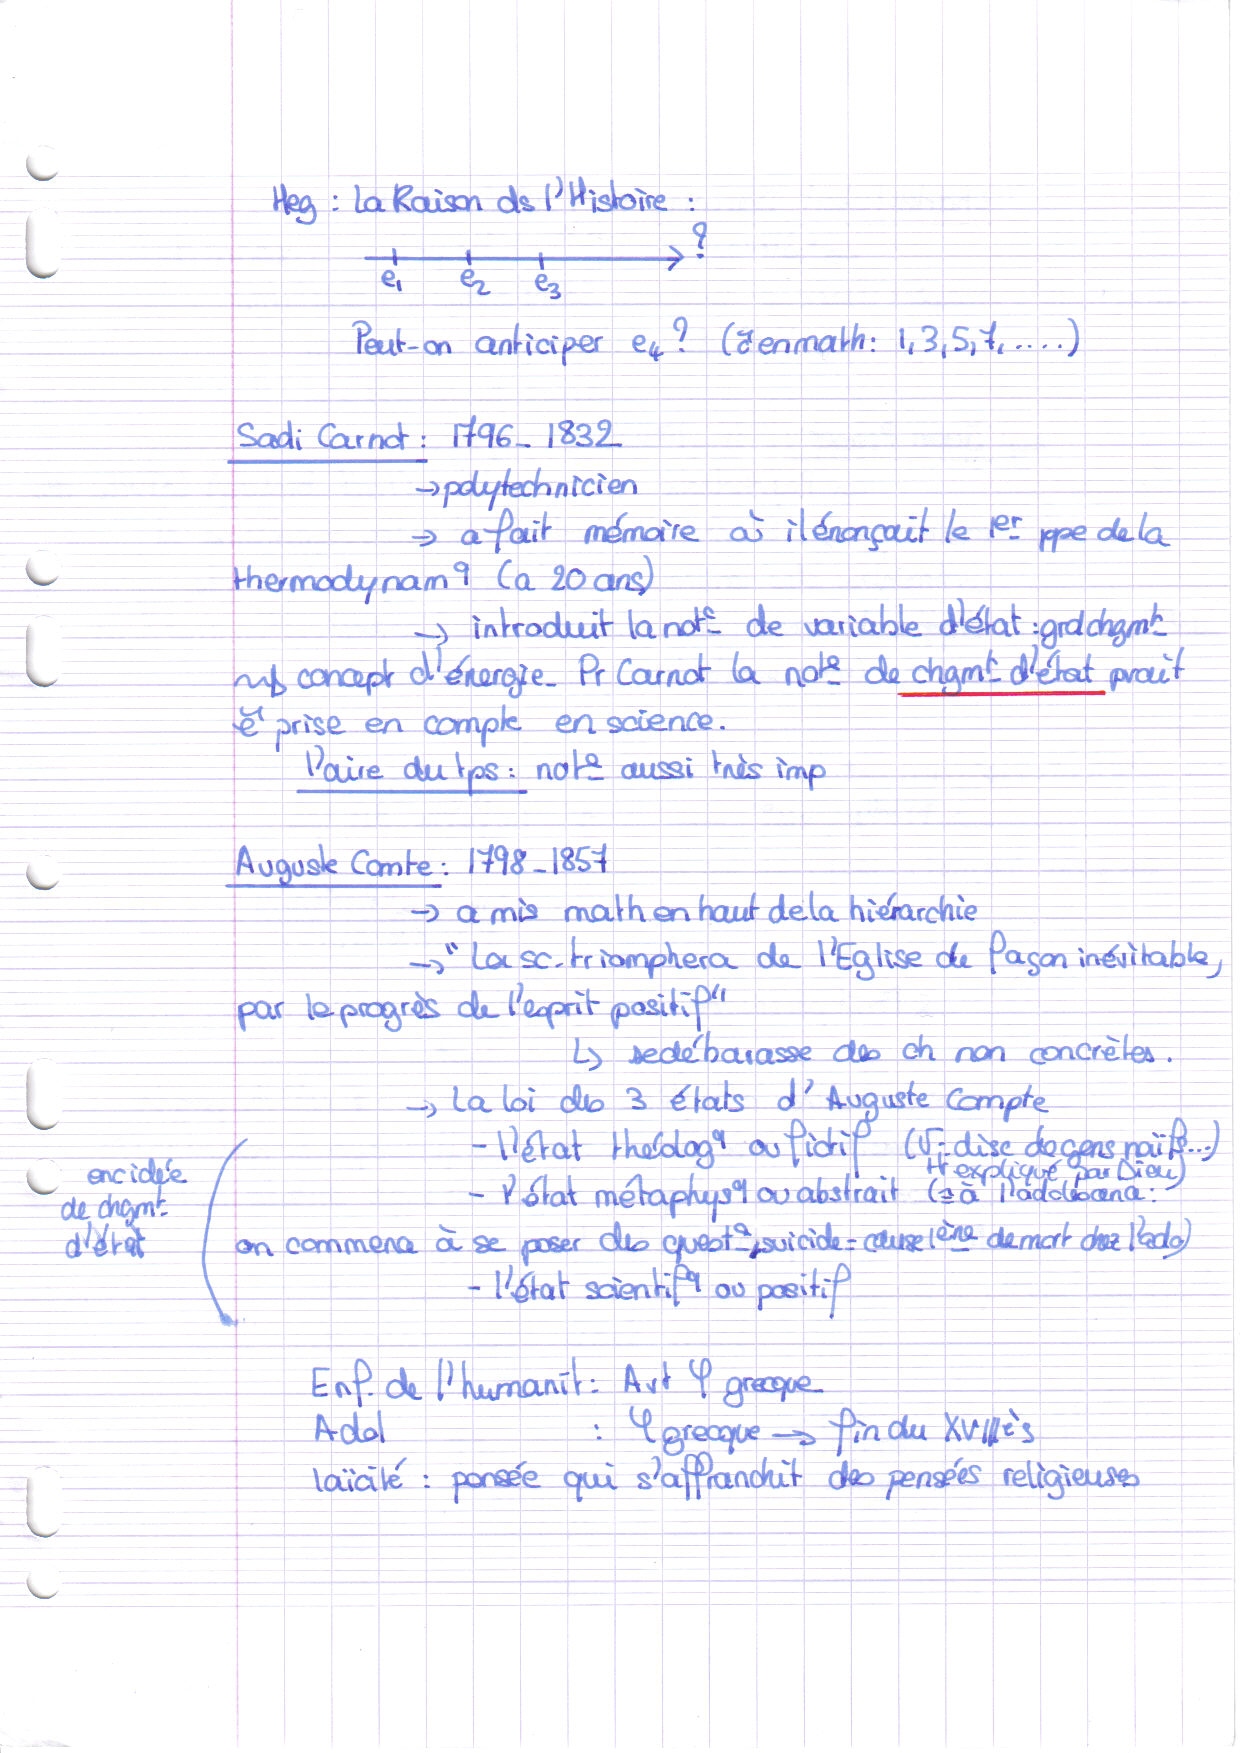 Heg : La Raison ds l'Histoire :
?
e1 e2 e3
Peut-on anticiper e4 ? (en math : 1, 3, 5, 7, ....)
Sadi Carnot : 1796 - 1832
→ polytechnicien
→ a fait mémoire où il énonçait le 1er ppe de la
thermodynamq (a 20 ans)
→ introduit la not° de variable d'état : grd chgmt
concept d'énergie. Pr Carnot la not° de chgmt d'état prait
ê prise en compte en science.
l'aire du tps : not° aussi très imp
Auguste Comte : 1798 - 1857
→ a mis math en haut de la hiérarchie
→ "La sc. triomphera de l'Eglise de façon inévitable,
par le progrès de l'esprit positif"
↳ se débarasse des ch non concrètes.
→ La loi des 3 états d'Auguste Compte
- l'état théologq ou fictif (: disc de gens naïfs...)
tt expliqué par Dieu)
- l'état métaphysq ou abstrait (= à l'adolescence :
en c idée
de chgmt
d'état
on commence à se poser des quest°, suicide = cause 1ère de mort chez l'ado)
- l'état scientifq ou positif
Enf. de l'humanit : Avt φ grecque
Adol : φ grecque → fin du XVIIIè s
laïcité : pensée qui s'affranchit des pensées religieuses